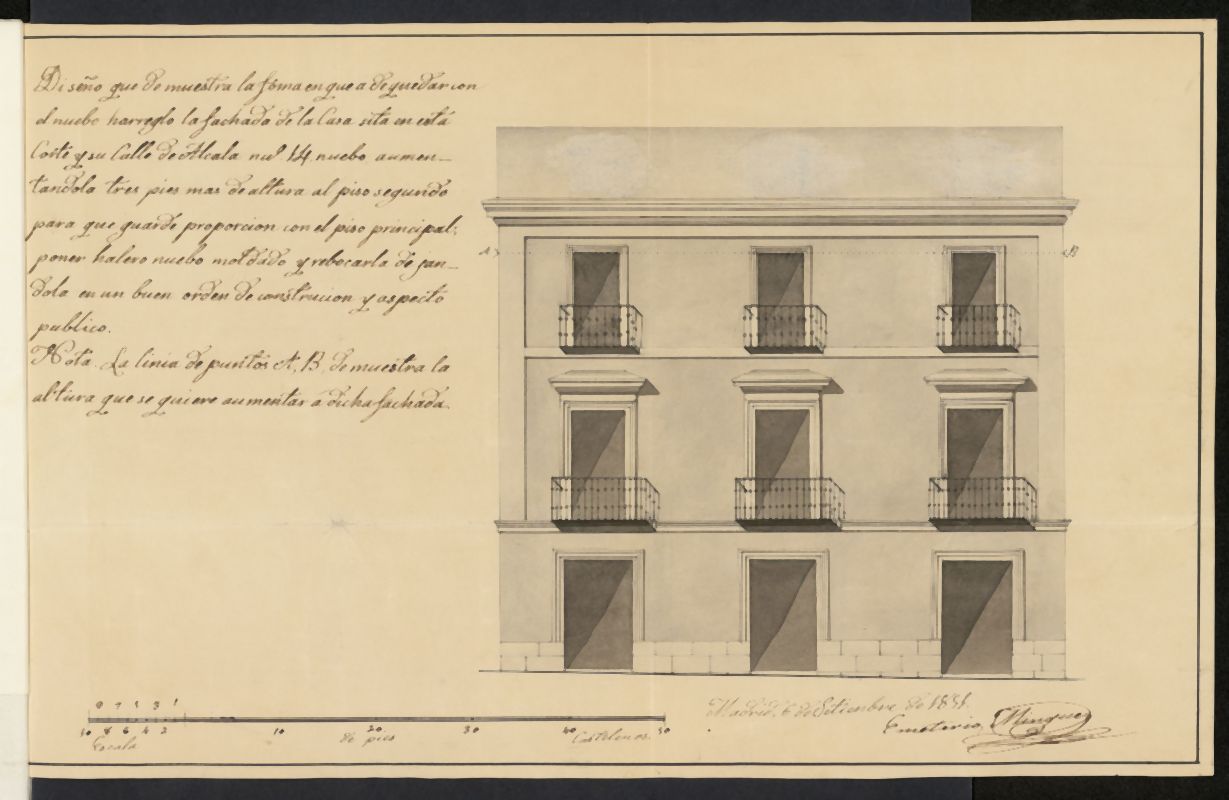 Diseño que de muestra la forma en que a de quedar con
el nuebo harreglo la fachada de la Casa sita en está
Corte y su Calle de Alcala nº 14 nuebo aumen-
tandola tres pies mas de altura al piso segundo
para que guarde proporcion con el piso principal;
poner halero nuebo moldádo y rebocarla de jan-
dola en un buen orden de construcion y aspecto
publico.
Nota. La linia de puntos A, B, de muestra la
altura que se quiere aumentar á dicha fachada.
A B
9 7 5 3 1
10 8 6 4 2 10 20 30 40 50
Escala de pies Castellanos
Madrid, 6 de Setiembre de 1851.
Emeterio Minguez